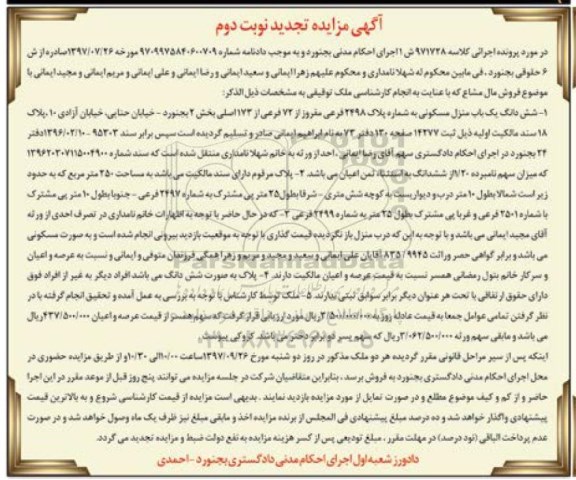 آگهی مزایده تجدید نوبت دوم
در مورد پرونده اجرائی کلاسه ۹۷۱۷۲۸ ش ۱ اجرای احکام مدنی بجنورد و به موجب دادنامه شماره ۹۷۰۹۹۷۵۸۴۰۶۰۰۷۰۹ مورخه ۱۳۹۷/۰۷/۲۶ صادره از ش
۶ حقوقی بجنورد ، فی مابین محکوم له شهلا نامداری و محکوم علیهم زهرا ایمانی و سعید ایمانی و رضا ایمانی و علی ایمانی و مریم ایمانی و مجید ایمانی با
موضوع فروش مال مشاع که با عنایت به انجام کارشناسی ملک توقیفی به مشخصات ذیل الذکر:
۱- شش دانگ یک باب منزل مسکونی به شماره پلاک ۲۴۹۸ فرعی مفروز از ۷۲ فرعی از ۱۷۳ اصلی بخش ۲ بجنورد - خیابان حنایی، خیابان آزادی ۱۰ ،پلاک
۱۸ سند مالکیت اولیه ذیل ثبت ۱۴۲۷۷ صفحه ۱۳۰ دفتر ۷۳ به نام ابراهیم ایمانی صادر و تسلیم گردیده است سپس برابر سند ۹۵۳۰۳ - ۱۳۹۶/۰۲/۱۰ دفتر
۲۴ بجنورد در اجرای احکام دادگستری سهم آقای رضا ایمانی ، احد از ورثه به خانم شهلا نامداری منتقل شده است که سند شماره ۱۳۹۶۲۰۳۰۷۱۱۵۰۰۴۹۰۰
که میزان سهم نامبرده ۱/۲۰ از ششدانگ به استثناء ثمن اعیان می باشد. ۲- پلاک مرقوم دارای سند مالکیت می باشد به مساحت ۲۵۰ متر مربع که به حدود
زیر است شمالا بطول ۱۰ متر درب و دیواریست به کوچه شش متری - شرقا بطول ۲۵ متر پی مشترک به شماره ۲۴۹۷ فرعی - جنوبا بطول ۱۰ متر پی مشترک
با شماره ۲۵۰۱ فرعی و غربا پی مشترک بطول ۲۵ متر به شماره ۲۴۹۹ فرعی ۳- که در حال حاضر با توجه به اظهارات خانم نامداری در تصرف احدی از ورثه
آقای مجید ایمانی می باشد و با توجه به این که درب منزل باز نگردیده قیمت گذاری با توجه به موقعیت بازدید بیرونی انجام شده است و به صورت مسکونی
می باشد و برابر گواهی حصر وراثت ۸۳۵/۹۹۴۵ آقایان علی ایمانی و سعید و مجید و مریم و زهرا همگی فرزندان متوفی و ایمانی و نسبت به عرصه و اعیان
و سرکار خانم بتول رمضانی همسر نسبت به قیمت عرصه و اعیان مالکیت دارند. ۴- پلاک به صورت شش دانگ می باشد افراد دیگر به غیر از افراد فوق
دارای حقوق ارتفاقی یا تحت هر عنوان دیگر برابر سوابق ثبتی ندارند. ۵- ملک توسط کارشناس با توجه به بررسی به عمل آمده و تحقیق انجام گرفته با در
نظر گرفتن تمامی عوامل جمعا به قیمت عادله روز به ۳/۵۰۰/۰۰۰/۰۰۰ ریال مورد ارزیابی قرار گرفت که سهم همسر از قیمت عرصه و اعیان ۴۳۷/۵۰۰/۰۰۰ ریال
می باشد و مابقی سهم ورثه ۳/۰۶۲/۵۰۰/۰۰۰ ریال که سهم پسر دو برابر دختر می باشد. کروکی پیوست.
اینکه پس از سیر مراحل قانونی مقرر گردیده هر دو ملک مذکور در روز دو شنبه مورخ ۱۳۹۷/۰۹/۲۶ ساعت ۱۰/۰۰ الی ۱۰/۳۰ و از طریق مزایده حضوری در
محل اجرای احکام مدنی دادگستری بجنورد به فروش برسد ، بنابراین متقاضیان شرکت در جلسه مزایده می توانند پنج روز قبل از موعد مقرر در این اجرا
حاضر و از کم و کیف موضوع مطلع و در صورت تمایل از مورد مزایده بازدید نمایند . بدیهی است مزایده از قیمت کارشناسی شروع و به بالاترین قیمت
پیشنهادی واگذار خواهد شد و ده درصد مبلغ پیشنهادی فی المجلس از برنده مزایده اخذ و مابقی مبلغ نیز ظرف یک ماه وصول خواهد شد و در صورت
عدم پرداخت الباقی (نود درصد) در مهلت مقرر ، مبلغ تودیعی پس از کسر هزینه مزایده به نفع دولت ضبط و مزایده تجدید می گردد.
دادورز شعبه اول اجرای احکام مدنی دادگستری بجنورد - احمدی